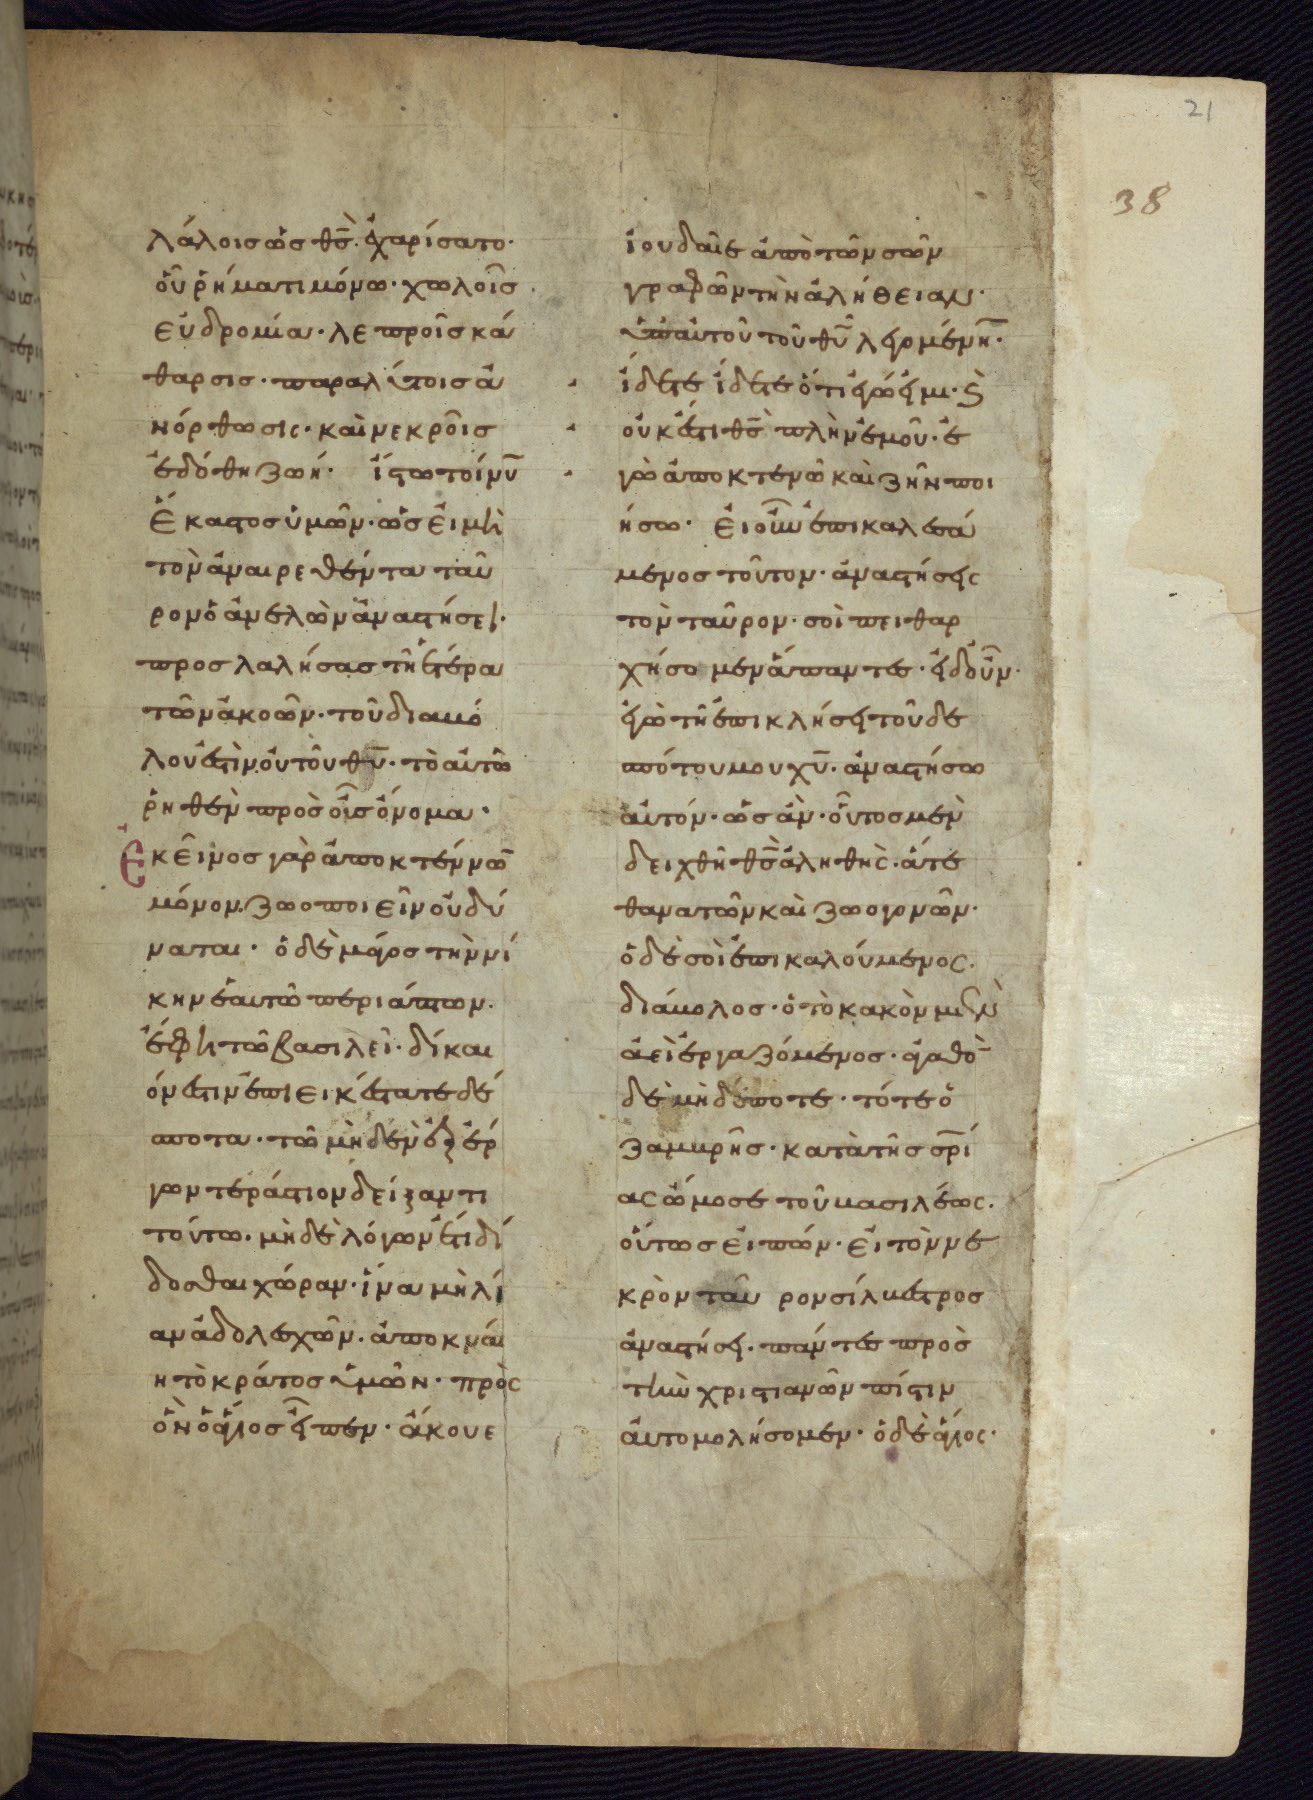 21
38
λάλοις ὡς θς̅ ἐχαρίσατο·
οὗ ῥήματι μόνω· χωλοῖς
εὐδρομία· λεπροῖς κά
θαρσις· παραλύτοις ἀ
νόρθωσις· καὶ νεκροῖς
ἐδόθη ζωή· ἴστω τοίνυ̅
ἕκαστος ὑμῶν· ὡς εἰ μὴ
τὸν ἀναιρεθέντα ταῦ
ρον ὁ ἀνελὼν ἀναστήσει·
προσλαλήσας τῆ ἑτέρα
τῶν ἀκοῶν· τοῦ διαβό
λου ἐστὶν οὐ τοῦ θυ̅· τὸ αὐτῶ
ῥηθὲν πρὸς οἷς ὄνομα·
Ἐκεῖνος γὰρ ἀποκτέννω̅
μόνον ζωοποιεῖν οὐ δύ
ναται· ὁ δὲ μάγος τὴν νί
κην ἑαυτῶ περιάπτων·
ἔφη τῶ βασιλεῖ· δίκαι
όν ἐστιν ἐπιεικέστατε δέ
σποτα· τῶ μὴ δὲν ἐξ ἔρ
γων τεράστιον δείξαντι
τούτω· μὴ δὲ λόγων ἔτι δί
δοσθαι χώραν· ἵνα μὴ λί
αν ἀδολεσχῶν· ἀποκναί
η τὸ κράτος ὑμῶν· πρὸς
ὃν ὁ ἅγιος εἶπεν· ἄκουε
ἰουδαῖε ἀπὸ τῶν σῶν
γραφῶν τὴν ἀλήθειαν·
ὑπ' αὐτοῦ τοῦ θυ̅ λεγομένη̅·
ἴδετε ἴδετε ὅτι ἐγώ εἰμι· καὶ
οὐκ ἔστι θς̅ πλὴν ἐμοῦ· ἐ
γὼ ἀποκτενῶ καὶ ζῆν ποι
ήσω· εἰ οὖν ἐπικαλεσά
μενος τοῦτον· ἀναστήσεις
τὸν ταῦρον· σοὶ πειθαρ
χήσομεν ἅπαντες· εἰ δ' οὖν·
ἐγὼ τῆ ἐπικλήσει τοῦ δε
σπότου μου χυ̅· ἀναστήσω
αὐτόν· ὡς ἂν· οὗτος μὲν
δειχθῆ θς̅ ἀληθὴς· ἅτε
θανατῶν καὶ ζωογονῶν·
ὁ δὲ σοὶ ἐπικαλούμενος·
διάβολος· ὁ τὸ κακὸν μὲν
ἀεὶ ἐργαζόμενος· ἀγαθὸ̅
δὲ μὴ δέποτε· τότε ὁ
ζαμβρῆς· κατὰ τῆς σρ̅ί
ας ὤμοσε τοῦ βασιλέως·
οὕτως εἰπών· εἰ τὸν νε
κρὸν ταῦρον σίλβεστρος
ἀναστήσει· πάντες πρὸς
τὴν χριστιανῶν πίστιν
αὐτομολήσομεν· ὁ δὲ ἅγιος·